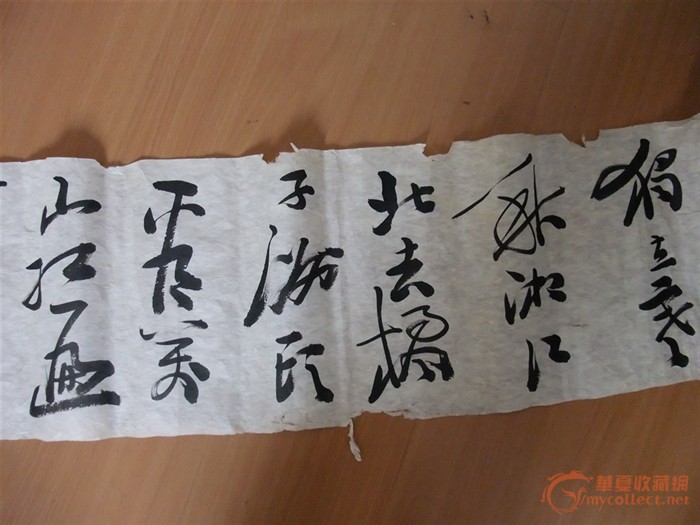 獨立寒
秋湘江
北去橘
子洲頭
看萬
山红遍
華夏收藏網
mycollect.net